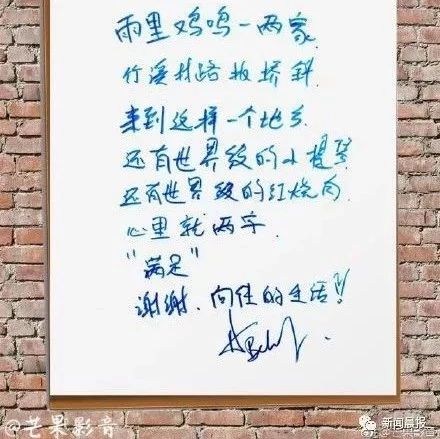 雨里鸡鸣一两家
竹溪村路板桥斜
来到这样一个地方
还有世界级的小提琴
还有世界级的红烧肉
心里就两字
"满足"
谢谢.向往的生活!!
@芒果影音
新闻晨报